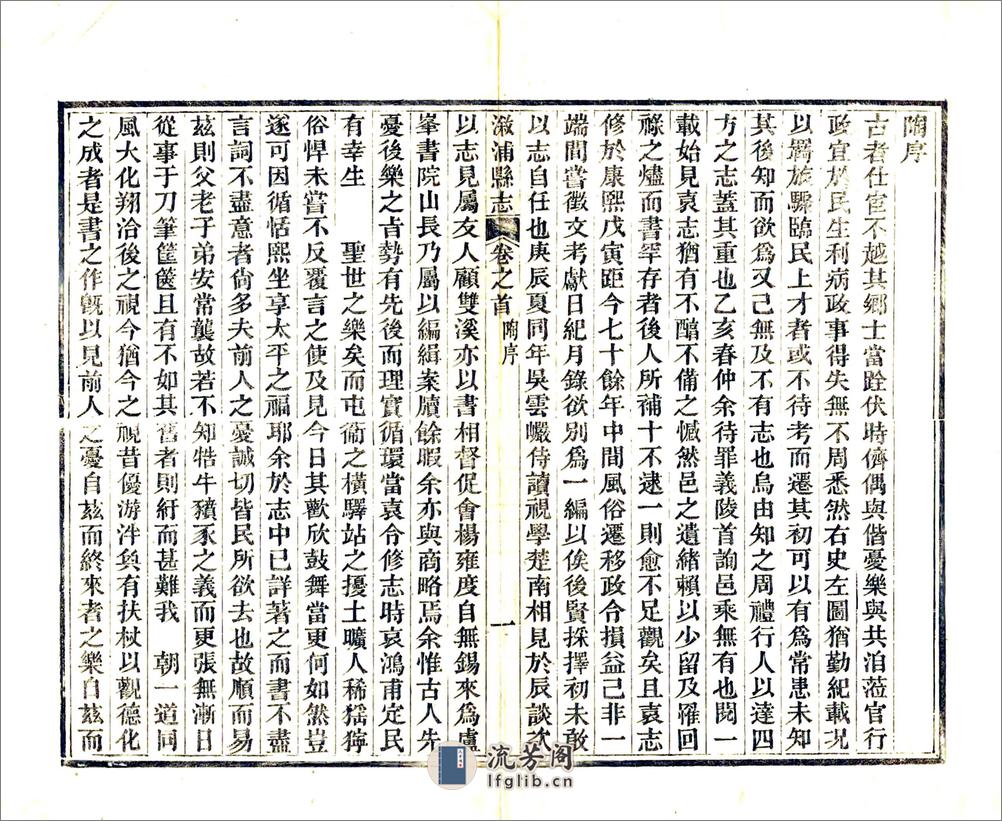 陶序
古者仕宦不越其鄉士當跧伏時儕偶與偕憂樂與共洎蒞官行
政宜於民生利病政事得失無不周悉然右史左圖猶勤紀載況
以羈旅驟臨民上才者或不待考而遷其初可以有爲常患未知
其後知而欲爲又己無及不有志也烏由知之周禮行人以達四
方之志蓋其重也乙亥春仲余待罪義陵首詢邑乘無有也閱一
載始見袁志猶有不醕不備之憾然邑之遺緒賴以少留及罹回
祿之燼而書罕存者後人所補十不逮一則愈不足觀矣且袁志
修於康熙戊寅距今七十餘年中間風俗遷移政令損益己非一
端間嘗徵文考獻日紀月錄欲別爲一編以俟後賢採擇初未敢
以志自任也庚辰夏同年吳雲巗侍讀視學楚南相見於辰談次
溆浦縣志 卷之首 陶序 一
以志見屬友人顧雙溪亦以書相督促會楊雍度自無錫來爲盧
峯書院山長乃屬以編緝案牘餘暇余亦與商略焉余惟古人先
憂後樂之㫖勢有先後而理實循環當袁令修志時哀鴻甫定民
有幸生 聖世之樂矣而屯衞之橫驛站之擾土曠人稀猺獰
俗悍未嘗不反覆言之使及見今日其歡欣鼓舞當更何如然豈
遂可因循恬熙坐享太平之福耶余於志中已詳著之而書不盡
言詞不盡意者尙多夫前人之憂誠切皆民所欲去也故順而易
玆則父老子弟安常襲故若不知牿牛豶豕之義而更張無漸日
從事于刀筆筐篋且有不如其舊者則紆而甚難我 朝一道同
風大化翔洽後之視今猶今之視昔優游泮奐有扶杖以觀德化
之成者是書之作旣以見前人之憂自玆而終來者之樂自玆而
流芳阁
lfglib.cn